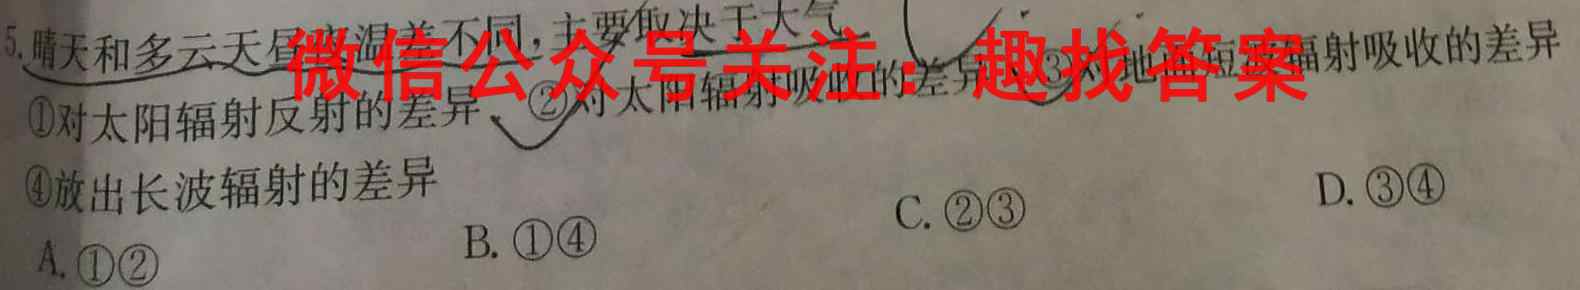 5.晴天和多云天昼夜温差不同,主要取决于大气
微信公众号关注:趣找答案
①对太阳辐射反射的差异 ②对太阳辐射吸收的差异 ③对地面 辐射吸收的差异
④放出长波辐射的差异
A.①② B.①④ C.②③ D.③④